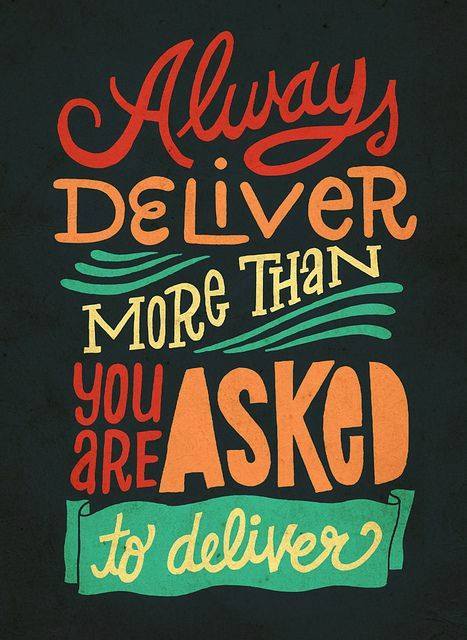 Always
DELiVeR
MORe THaN
YOU
aRE ASKeD
to deliver